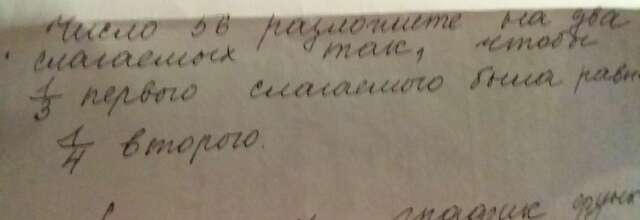 Число 56 разложите на два
слагаемых так, чтобы
1/3 первого слагаемого была равна
1/4 второго.